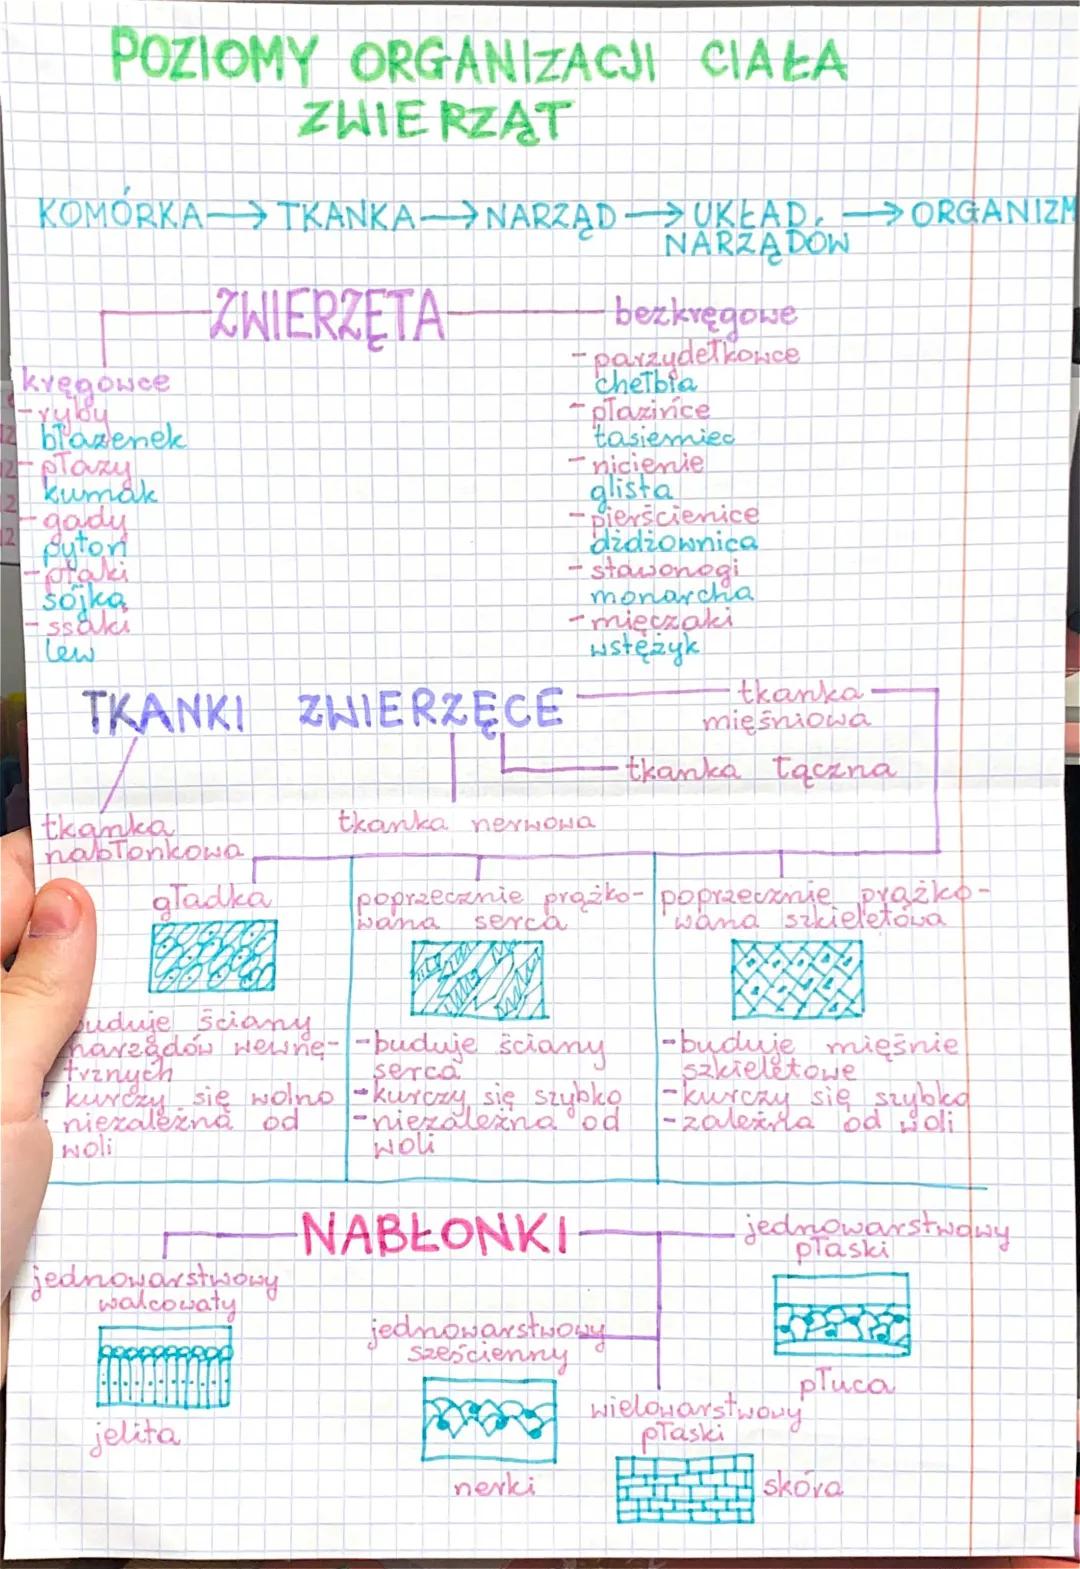 POZIOMY ORGANIZACJI CIAŁA
ZWIERZĄT
KOMÓRKA → TKANKA → NARZĄD → UKŁAD → ORGANIZM
NARZĄDÓW
ZWIERZĘTA
kręgowce
- ryby
błazenek
- płazy
kumak
- gady
pyton
- ptaki
sójka
- ssaki
lew
bezkręgowe
- parzydełkowce
chełbia
- płazińce
tasiemiec
- nicienie
glista
- pierścienice
dżdżownica
- stawonogi
monarcha
- mięczaki
wstężyk
TKANKI ZWIERZĘCE
tkanka
mięśniowa
tkanka łączna
tkanka nerwowa
tkanka
nabłonkowa
gładka
buduje ściany
narządów wewnę-
trznych
kurczy się wolno
niezależna od
woli
poprzecznie prążko-
wana serca
-buduje ściany
serca
-kurczy się szybko
-niezależna od
woli
poprzecznie prążko-
wana szkieletowa
-buduje mięśnie
szkieletowe
-kurczy się szybko
-zależna od woli
NABŁONKI
jednowarstwowy
walcowaty
jelita
jednowarstwowy
sześcienny
nerki
wielowarstwowy
płaski
skóra
jednowarstwowy
płaski
płuca